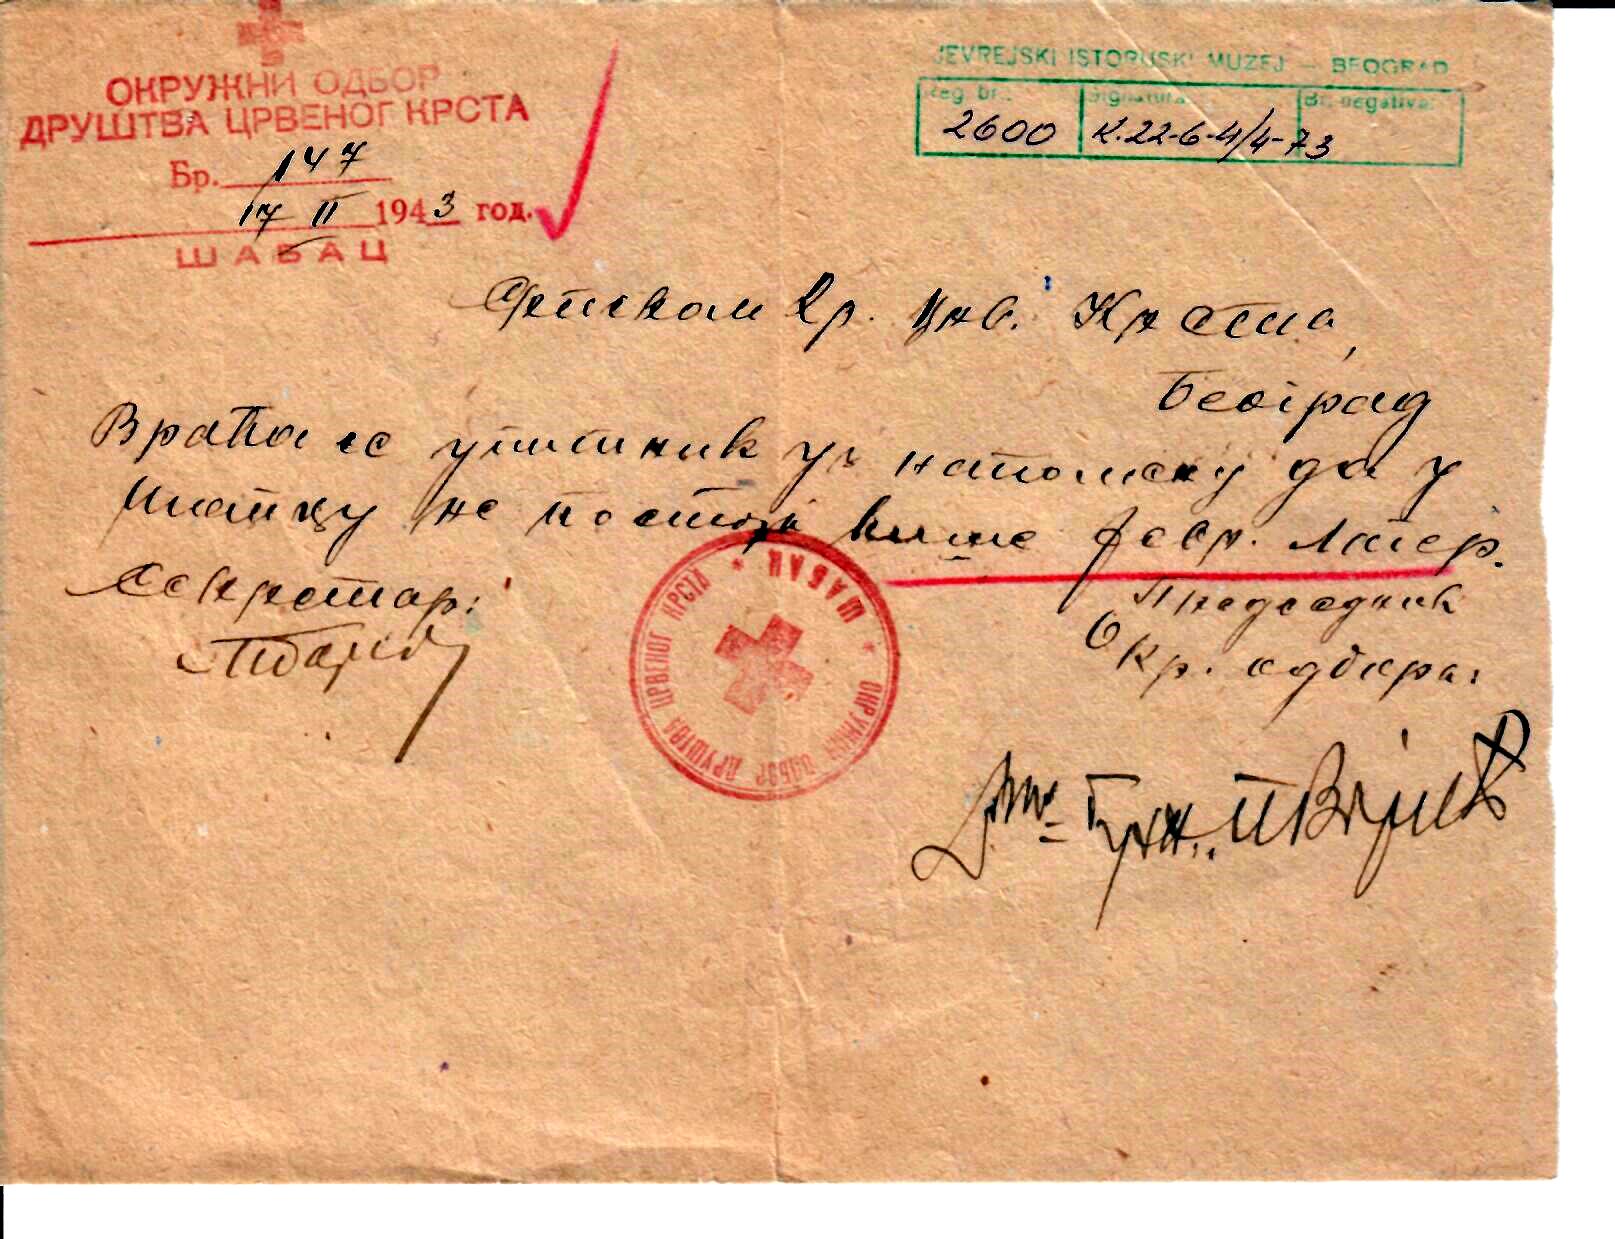 ОКРУЖНИ ОДБОР
ДРУШТВА ЦРВЕНОГ КРСТА
Бр. 147
17 II 1943 год.
ШАБАЦ
JEVREJSKI ISTORIJSKI MUZEJ — BEOGRAD
Reg. br.: Signatura: Br. negativa:
2600 K.22-6-4/4-73
Српском Др. Црв. Крста,
Београд
Враћа се упитник уз напомену да у
Шапцу не постоји више јевр. логор.
Секретар:
Председник
Окр. одбора:
ОКРУЖНИ ОДБОР ДРУШТВА ЦРВЕНОГ КРСТА * ШАБАЦ *